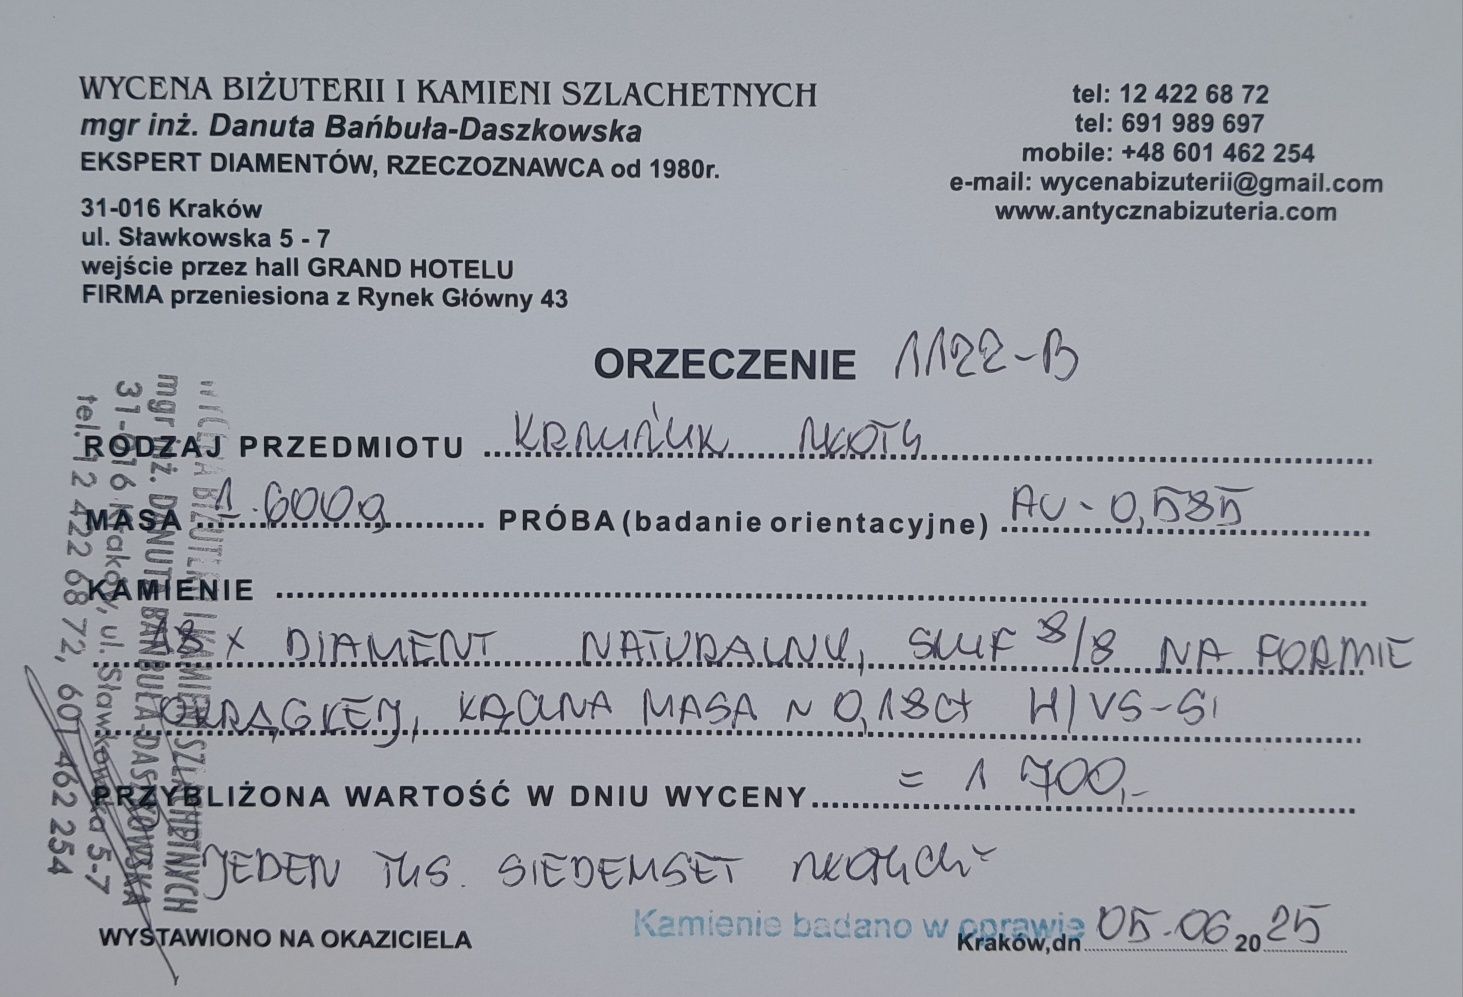 WYCENA BIŻUTERII I KAMIENI SZLACHETNYCH
mgr inż. Danuta Bańbuła-Daszkowska
EKSPERT DIAMENTÓW, RZECZOZNAWCA od 1980r.
31-016 Kraków
ul. Sławkowska 5 - 7
wejście przez hall GRAND HOTELU
FIRMA przeniesiona z Rynek Główny 43
tel: 12 422 68 72
tel: 691 989 697
mobile: +48 601 462 254
e-mail: wycenabizuterii@gmail.com
www.antycznabizuteria.com
ORZECZENIE 1122-B
RODZAJ PRZEDMIOTU
MASA 1.600g PRÓBA (badanie orientacyjne) AU - 0,585
KAMIENIE
18 x DIAMENT NATURALNY, SZLIF 8/8 NA FORMIE
OKRĄGŁEJ, ŁĄCZNA MASA ~ 0,18ct H/VS-SI
PRZYBLIŻONA WARTOŚĆ W DNIU WYCENY = 1 700,-
JEDEN TYS. SIEDEMSET ZŁOTYCH
WYSTAWIONO NA OKAZICIELA
Kamienie badano w oprawie
Kraków,dn 05.06 2025
WYCENA BIŻUTERII I KAMIENI SZLACHETNYCH
mgr inż. DANUTA BAŃBUŁA-DASZKOWSKA
31-016 Kraków, ul. Sławkowska 5-7
tel. 12 422 68 72, 601 462 254